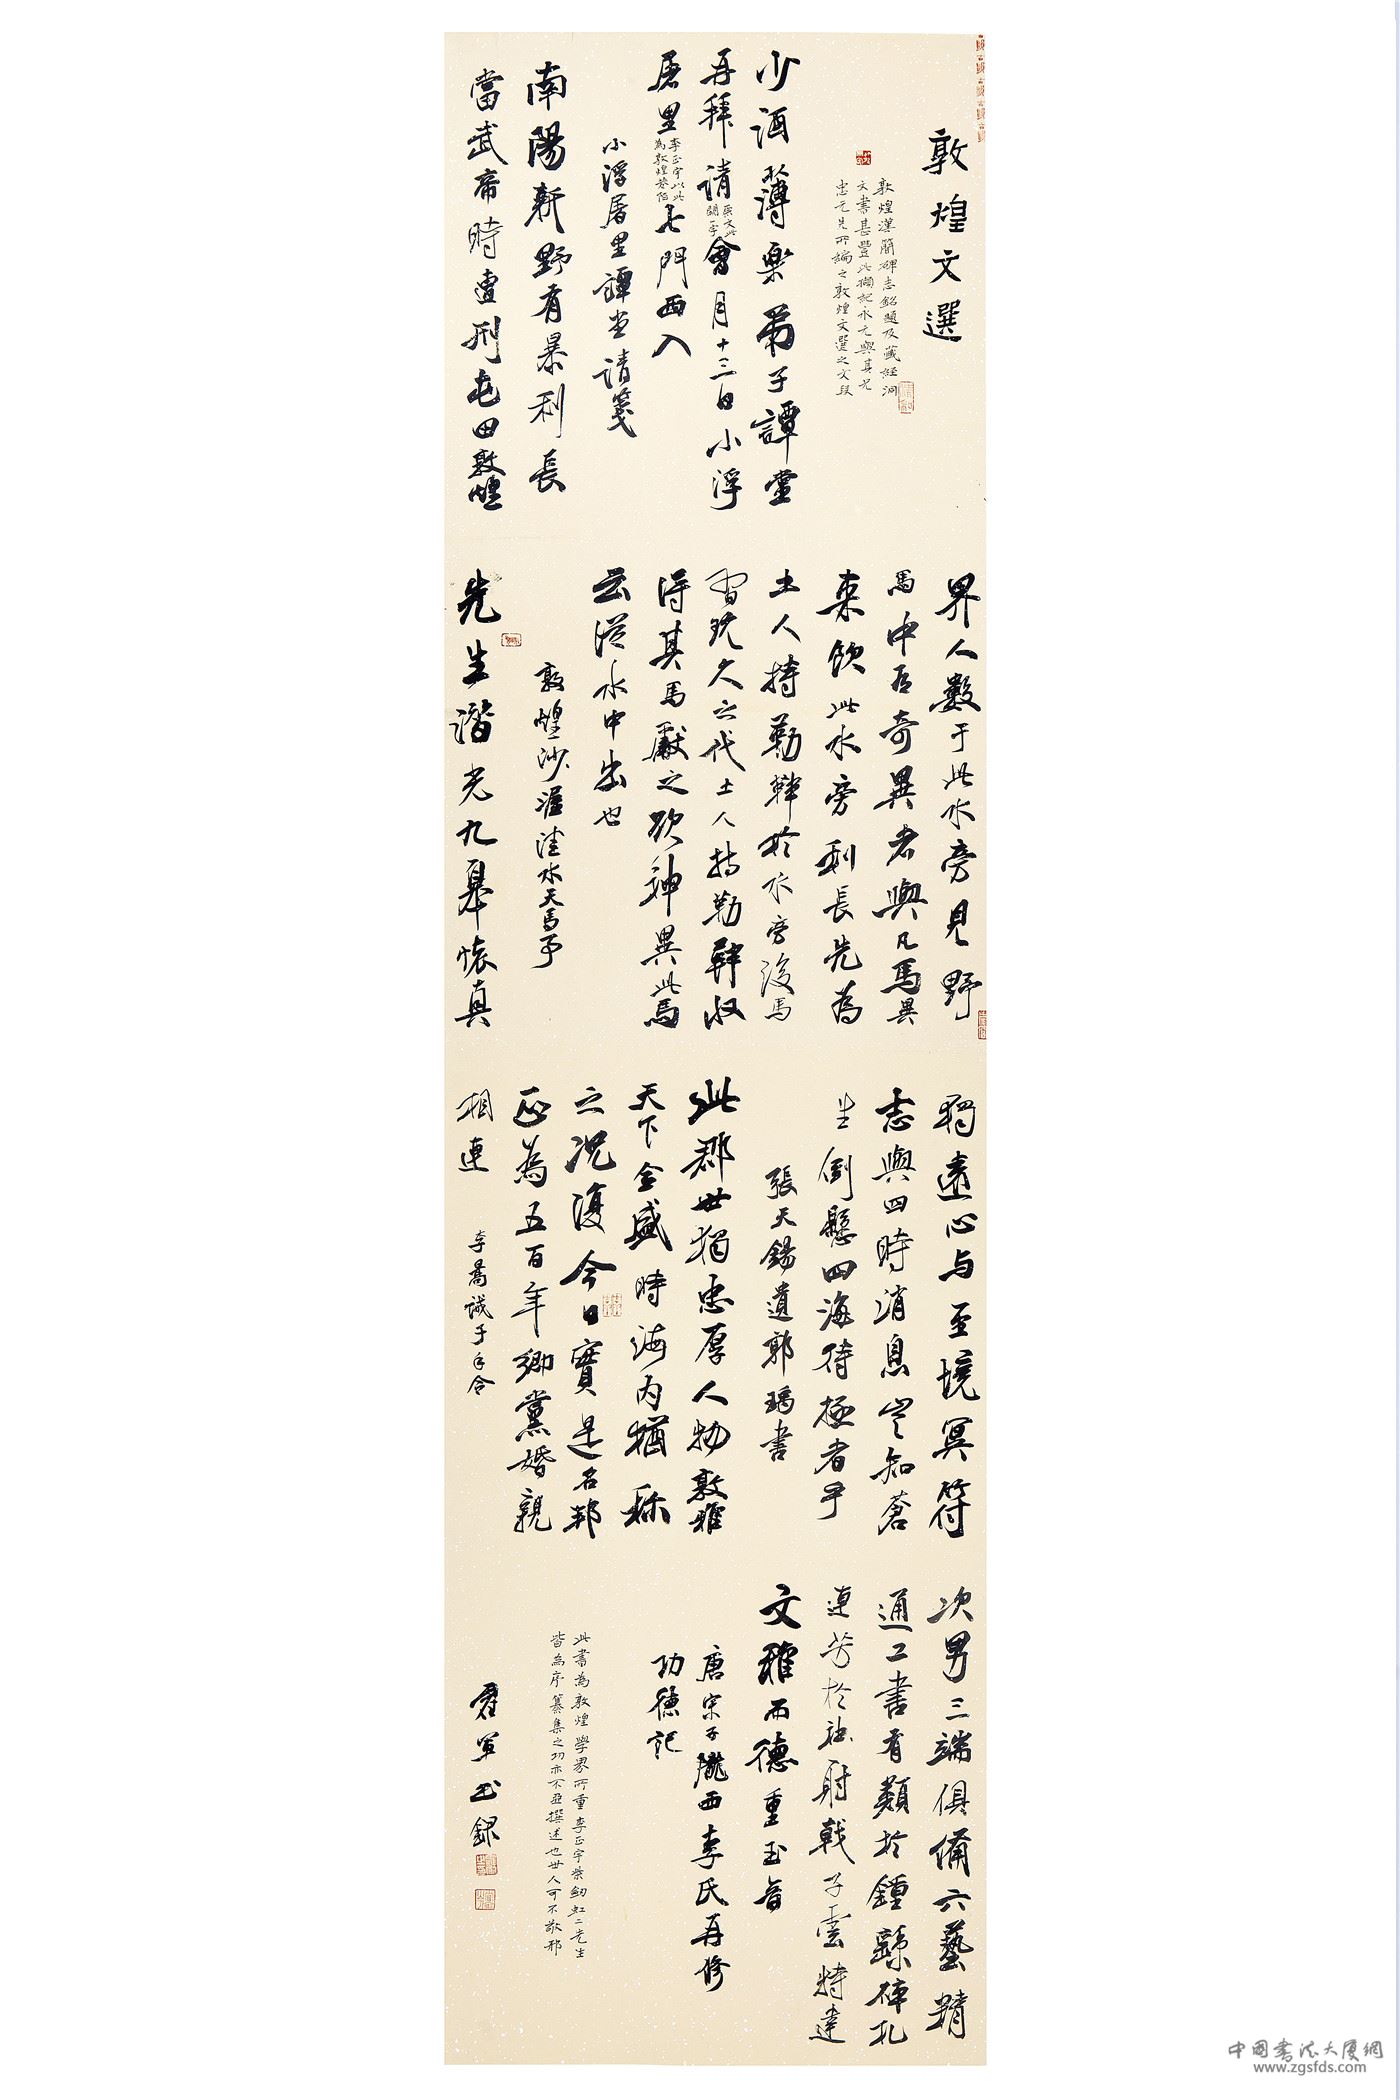 敦煌文選
敦煌漢簡碑志銘題及藏經洞
文書甚豐此擷紀永元與其兄
忠元先所編之敦煌文選之文段
少酒薄樂弟子譚堂
再拜請會月十三日小浮
屠里七門西入
李正宇以此
為敦煌
小浮屠里譚堂請箋
南陽新野有暴利長
當武帝時遭刑屯田敦煌
界人數于此水旁見野
馬中有奇異者與凡馬異
來飲此水旁利長先為
土人持勒靽於水旁後馬
習玩久之代土人持勒靽收
得其馬獻之欲神異此馬
云從水中出也
敦煌沙渥洼水天馬
先生潛光九皋懷真
獨遠心与至境冥符
志與四時消息豈知蒼
生倒懸四海待拯者乎
張天錫遺郭瑀書
此郡世獨忠厚人物敦雅
天下全盛時海內猶稱
之況復今日實是名邦
正為五百年鄉黨婚親
相連
李暠誡子手令
次男三端俱備六藝精
通工書有類於鍾繇碎札
連芳於射戟子雲特達
文雅而德重玉音
唐宗子隴西李氏再修
功德記
此書為敦煌學界所重李正宇柴劍虹二先生
皆為序纂集之功亦不亞撰述也世人可不敬邪
軍書錄
中國書法大廈網
www.zgsfds.com